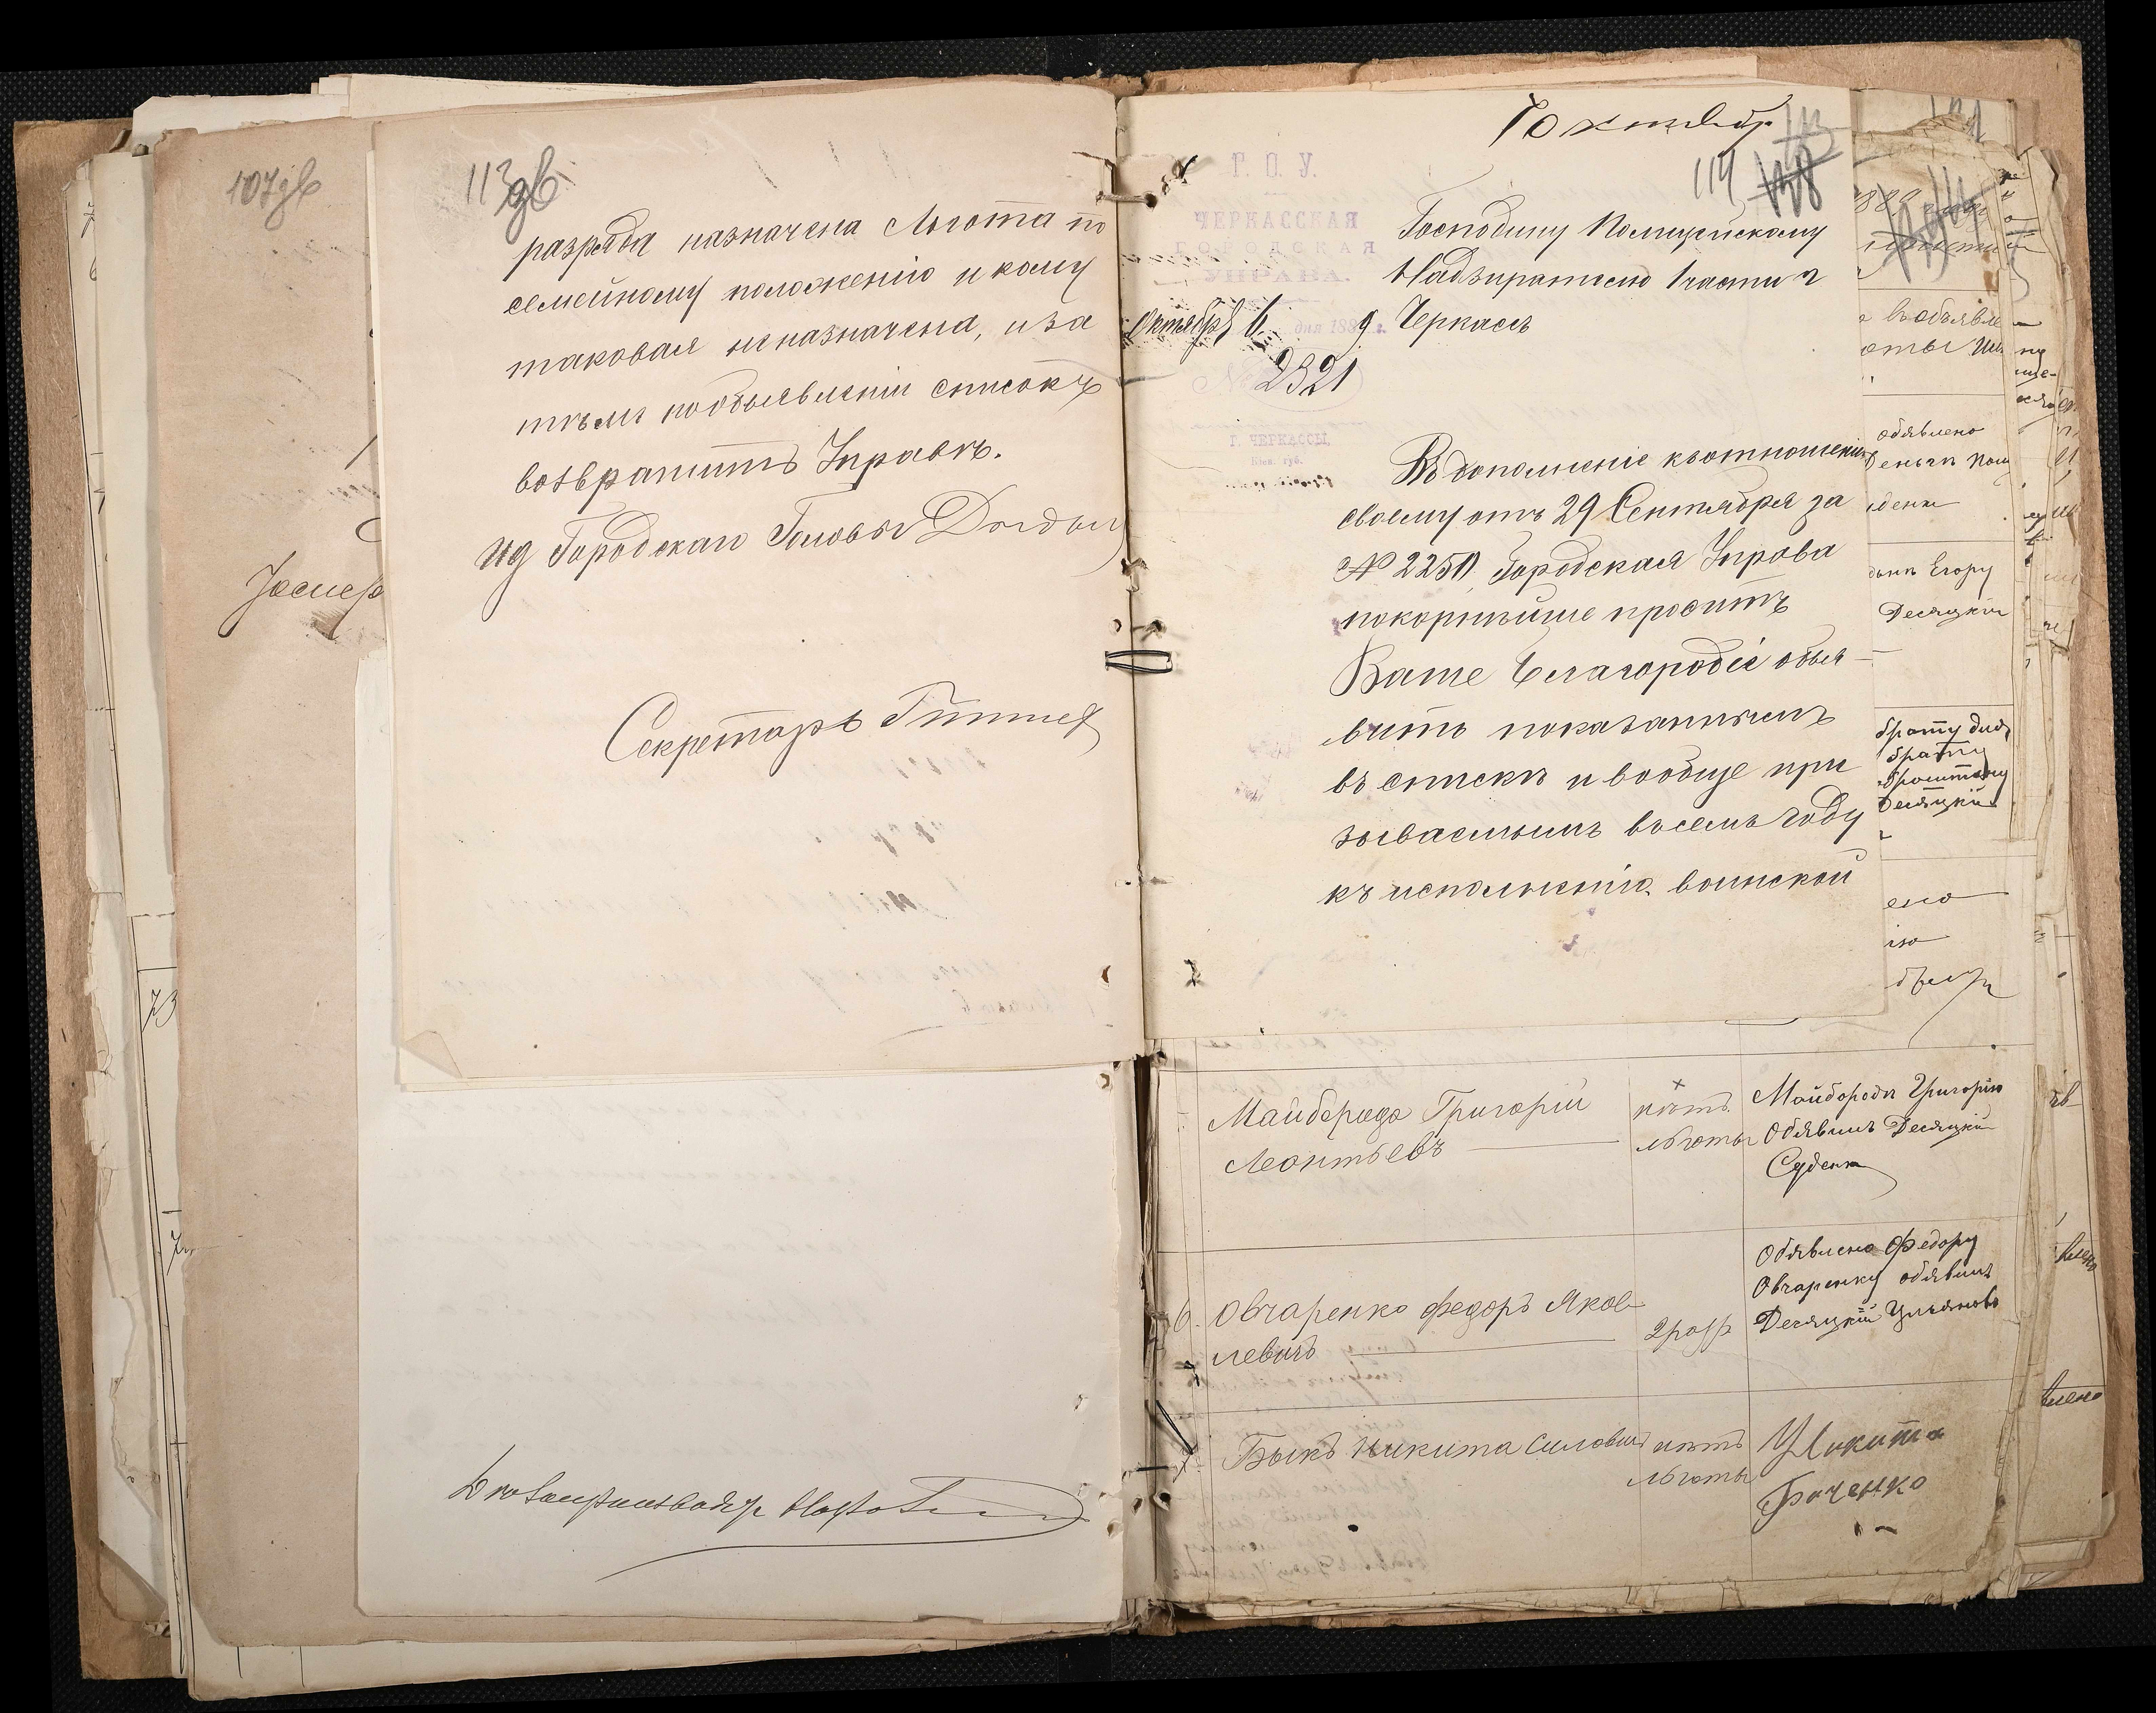 107 зв
113 зв
разряда назначена льгота по
семейному положенію и кому
таковая неназначена, и за
тѣмъ по объявленіи списокъ
возвратить Управѣ.
ИД Городскаго Головы
Секретарь
7 октября
114
Г. О. У.
ЧЕРКАССКАЯ
ГОРОДСКАЯ
УПРАВА.
Октября 6 дня 1889 г.
№ 2321
Г. ЧЕРКАССЫ,
Кіев. губ.
Господину Полицейскому
Надзирателю 1 части г
Черкасъ
Въ дополненіе къ отношенію
своему отъ 29 Сентября за
№ 2250 Городская Управа
покорнѣйше проситъ
Ваше Благородіе объя
вить показаннымъ
въ спискѣ и вообще при
зываемымъ въ семъ году
къ исполненію воинской
объявлено
Егору
Десяцкій
брату
брату
Десяцкій
Майборода Григорій
Леонтьевъ
нѣтъ
льготы
Майбородѣ Григорію
Обявилъ Десяцкій
Суденк
6. Овчаренко Федоръ Яков
левичъ
2 разр
Обявлено Федору
Овчаренку обявилъ
Десяцкій Ульяновъ
7. Быкъ Никита Силовичъ
нѣтъ
льготы
Никита
Баченко
73